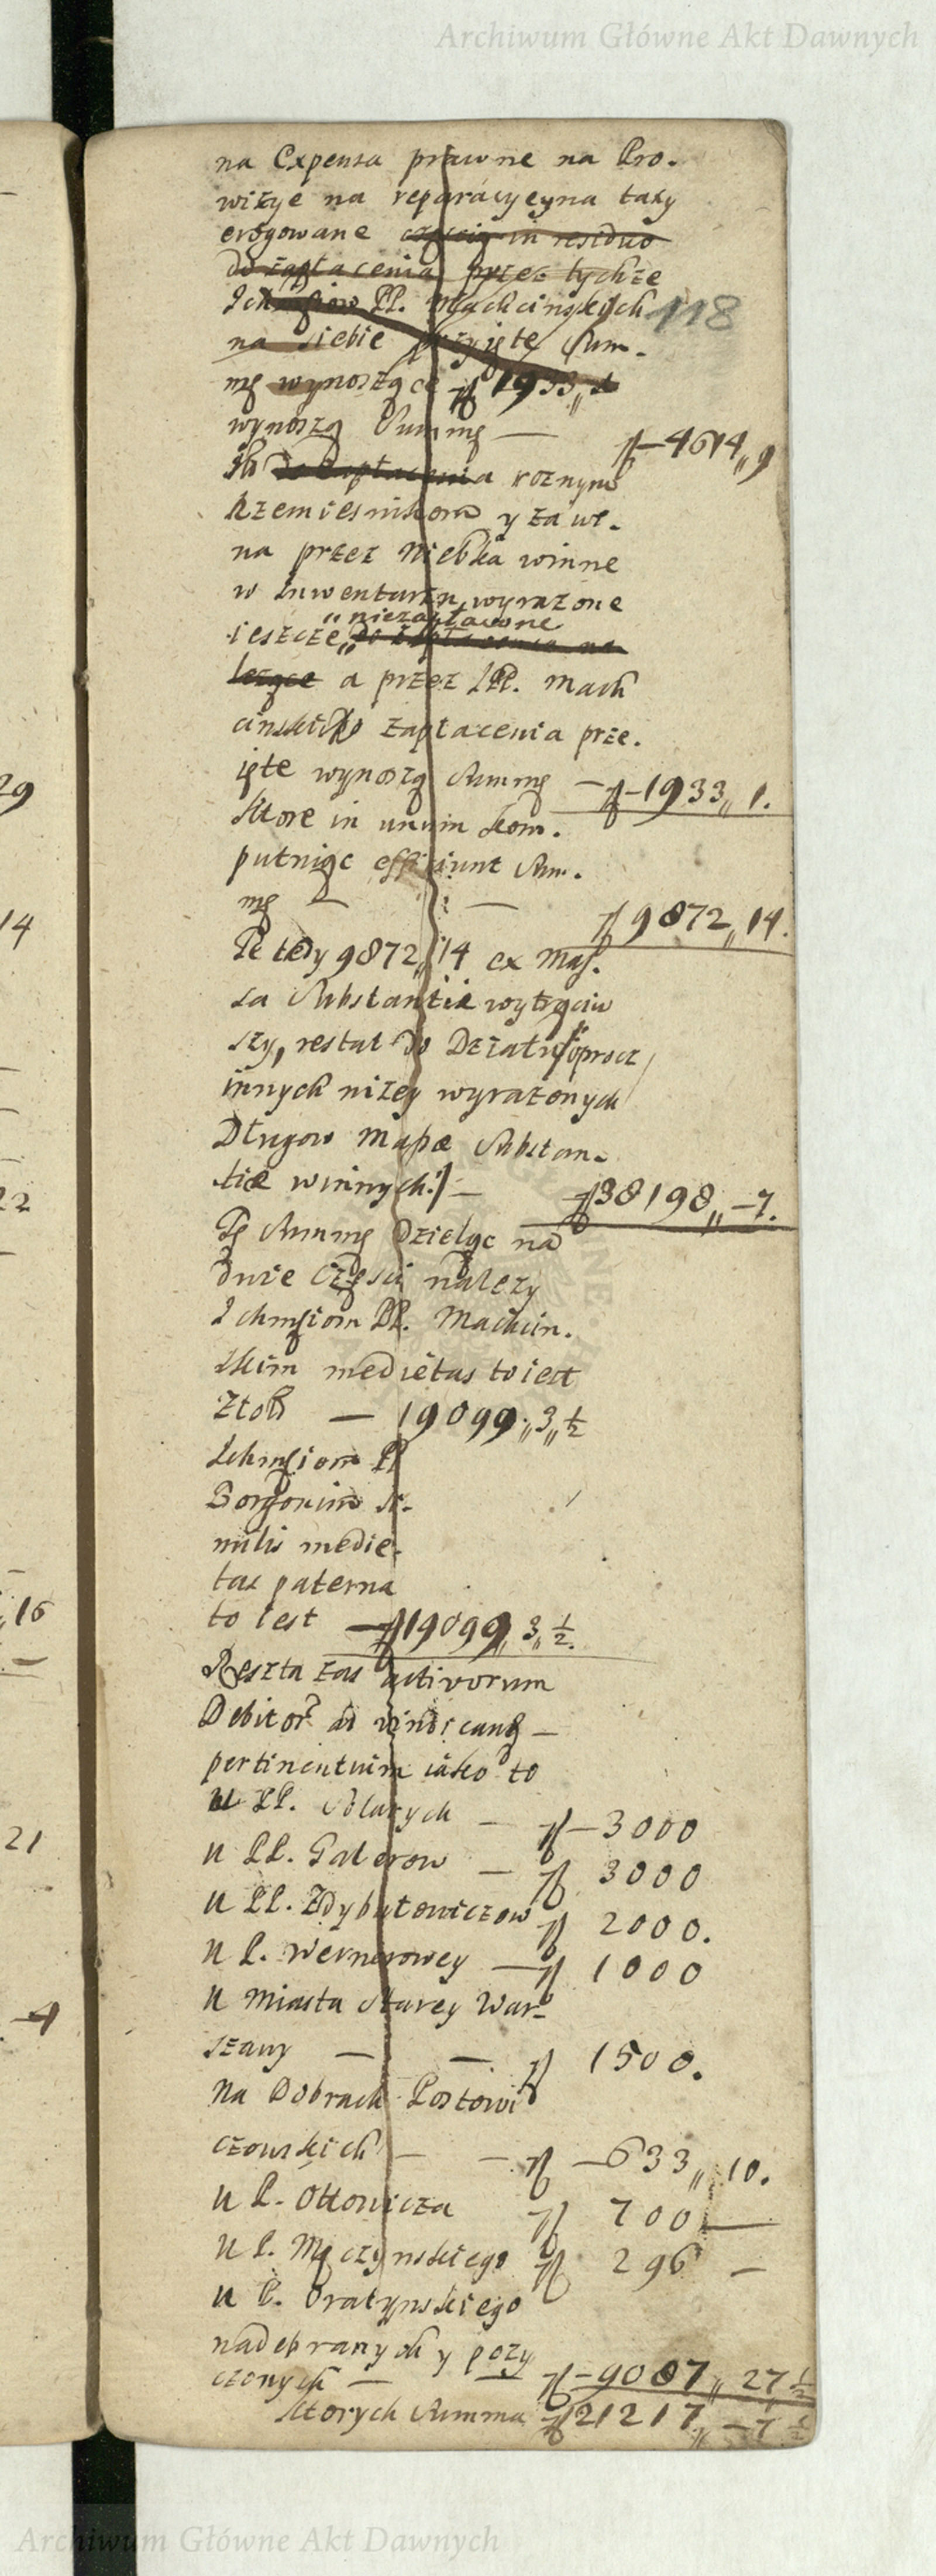 Archiwum Główne Akt Dawnych
na Expensa prawne na Pro-
wizye na reparacyeyna taxy
erogowane częścią in residuo
do zapłacenia przez tychże
Ichmściow PP. Machcinskich
118
na siebie przyięte Sum-
mę wynoszące f 1933,, 1
wynoszą Summę — f–4614,, 9
roznym
Rzemiesnikom y za wi-
na przez Niebka winne
w Inwentarzu wyrazone
niezapłacone
ieszcze do zapłacenia na
lezące a przez JPP. Mach
cinskich do zapłacenia prze-
ięte wynoszą Summę — f–1933,, 1.
ktore in unum kom-
putuiąc efficiunt Sum-
mę — — f 9872,, 14.
Te tedy 9872,, 14 ex Mas-
sa Substantiæ wytrąciw
szy, restat do Działu /:oprocz
innych nizey wyrazonych
Długow Massæ Substan-
tiæ winnych:/ — f 38198,, –7.
Tę Summę Dzieląc na
dwie Części nalezy
Ichmściom PP. Machcin-
skim medietas to iest
Złotch — 19099,, 3,, ½
Ichmściom PP
Gorgonim si-
milis medie-
tas paterna
to iest — f 19099,, 3,, ½.
Reszta zas activorum
Debitor ad vindicand —
pertinentium iako to
U PP. Solarych — f–3000
U PP. Galerow — f 3000
U PP. Zdybutowiczow f 2000.
U P. Wernerowey — f 1000
U Miasta Starey War-
szawy — — f 1500.
Na Dobrach Postowi
czowskich — — f –633,, 10.
U P. Ottowicza f 700 —
U P. Mączynskiego f 296 —
U P. Bratynskiego
nadebranych y pozy
czonych — — f–9087,, 27 ½
ktorych Summa f 21217,, –7 ½
29
14
22
,,16
21
4
Archiwum Główne Akt Dawnych